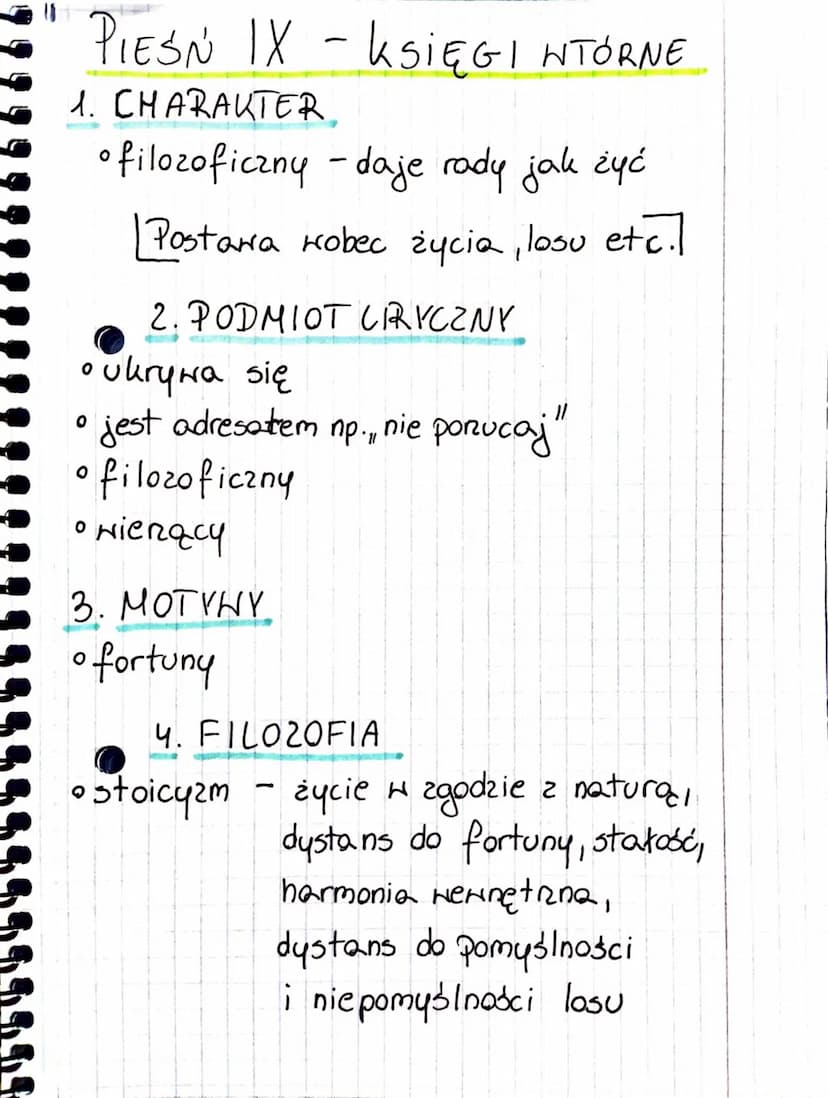 PIEŚŃ IX - KSIĘGI WTÓRNE
1. CHARAKTER
◦ filozoficzny - daje rady jak żyć
[Postawa wobec życia, losu etc.]
2. PODMIOT LIRYCZNY
◦ ukrywa się
◦ jest adresatem np. „nie porzucaj"
◦ filozoficzny
◦ wierzący
3. MOTYWY
◦ fortuny
4. FILOZOFIA
◦ stoicyzm - życie w zgodzie z naturą,
dystans do fortuny, stałość,
harmonia wewnętrzna,
dystans do pomyślności
i niepomyślności losu